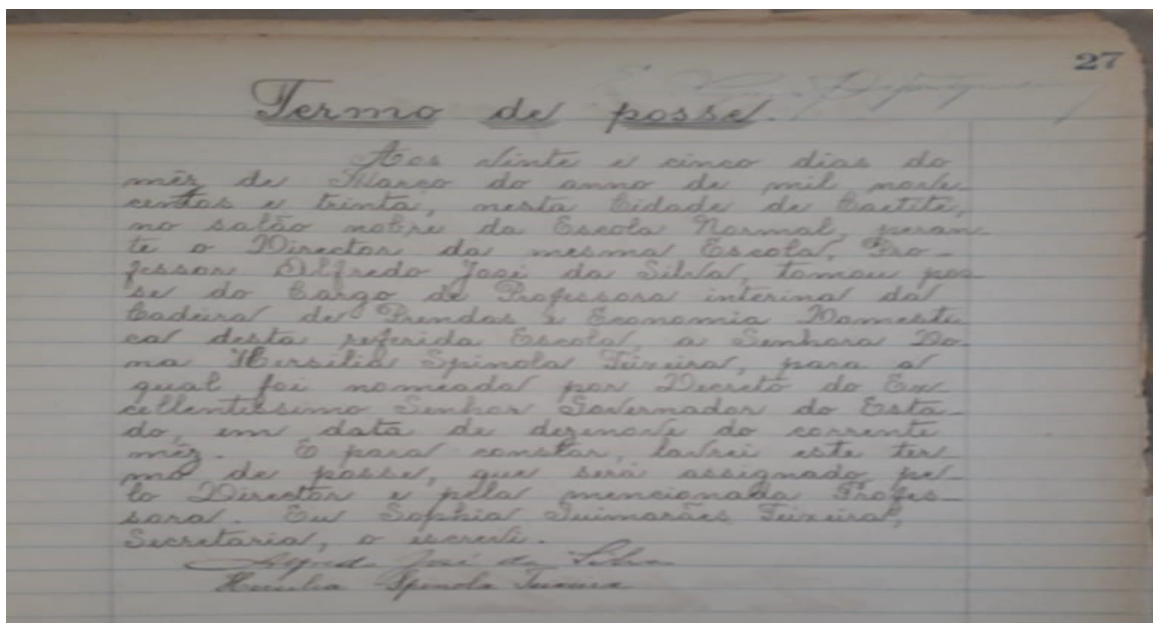 27
Termo de posse.
Aos vinte e cinco dias do
mêz de Março do anno de mil nove
centos e trinta, nesta Cidade de Caetité,
no salão nobre da Escola Normal, peran
te o Director da mesma Escola, Pro-
fessor Alfredo José da Silva, tomou pos-
se do Cargo de Professora interina da
Cadeira de Prendas e Economia Domesti
ca desta referida Escola, a Senhora Do-
na Hersilia Spinola Teixeira, para a
qual foi nomeada por Decreto do Ex
cellentissimo Senhor Governador do Esta-
do, em data de dezenove do corrente
mêz. E para constar, lavrei este ter
mo de posse, que será assignado pe-
lo Director e pela mencionada Profes-
sora. Eu Sophia Guimarães Teixeira,
Secretaria, o escrevi.
Alfredo José da Silva
Hersilia Spinola Teixeira